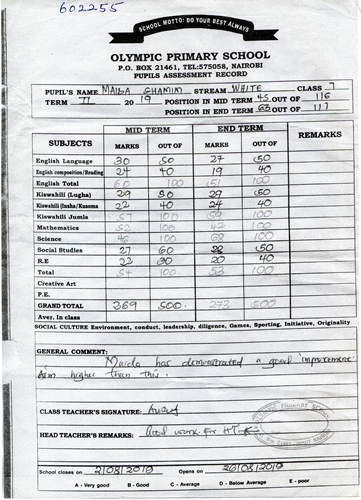 602255
SCHOOL MOTTO: DO YOUR BEST ALWAYS
OLYMPIC PRIMARY SCHOOL
P.O. BOX 21461, TEL:575058, NAIROBI
PUPILS ASSESSMENT RECORD
PUPIL'S NAME MAIDA STREAM WHITE CLASS 7
TERM II 2019 POSITION IN MID TERM 45 OUT OF 116
POSITION IN END TERM 63 OUT OF 117
MID TERM END TERM
SUBJECTS MARKS OUT OF MARKS OUT OF REMARKS
English Language 30 50 27 50
English composition/Reading 24 40 19 40
English Total 60 100 51 100
Kiswahili (Lugha) 28 50 29 50
Kiswahili (Insha/Kusoma 22 40 24 40
Kiswahili Jumla 57 100 59 100
Mathematics 52 100 42 100
Science 46 100 68 100
Social Studies 27 60 28 50
R.E 22 30 20 40
Total 54 100 53 100
Creative Art
P.E.
GRAND TOTAL 269 500 273 500
Aver. In class
SOCIAL CULTURE Environment, conduct, leadership, diligence, Games, Sporting, Initiative, Originality
GENERAL COMMENT:
Maida has demonstrated a good improvement
Aim higher than this.
CLASS TEACHER'S SIGNATURE:
HEAD TEACHER'S REMARKS: Good work. For HT
OLYMPIC PRIMARY SCHOOL
School closes on 2/08/2019 Opens on 26/08/2019
A - Very good B - Good C - Average D - Below Average E - poor